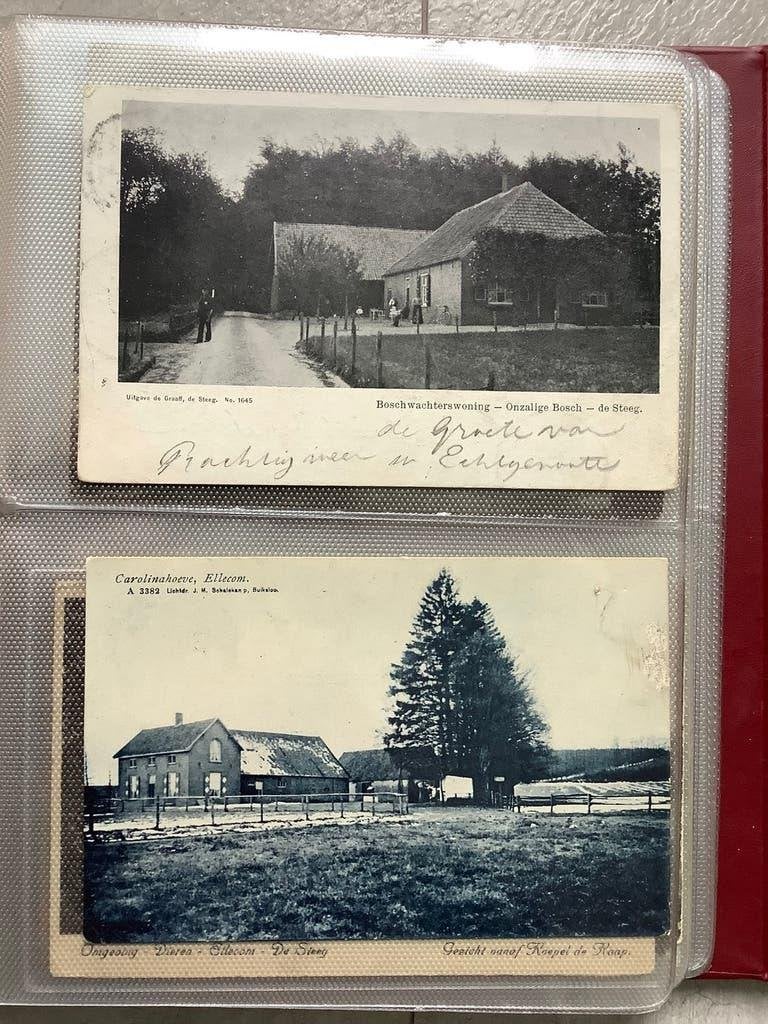 Uitgave de Graaff, de Steeg. No. 1645
Boschwachterswoning — Onzalige Bosch — de Steeg.
de Groete van
Prachtig weer
Carolinahoeve, Ellecom.
A 3382 Lichtdr. J. M. Schalekamp, Buiksloo.
Omgeving - Dieren - Ellecom - De Steeg Gezicht vanaf Koepel de Kaap.